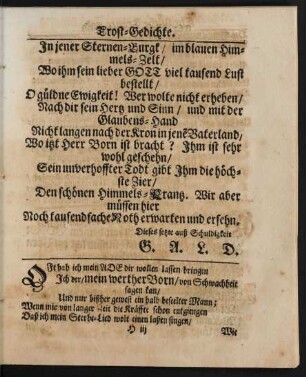 Trost-Gedichte.
In jener Sternen-Burgk / im blauen Him-
mels-Zelt /
Wo ihm sein lieber GOTT viel tausend Lust
bestellt /
O güldne Ewigkeit! Wer wolte nicht erheben /
Nach dir sein Hertz und Sinn / und mit der
Glaubens-Hand
Nicht langen nach der Kron in jenē Vaterland /
Wo itzt Herr Born ist bracht? Ihm ist sehr
wohl geschehn /
Sein unverhoffter Todt gibt Ihm die höch-
ste Zier /
Den schönen Himmels-Krantz. Wir aber
müssen hier
Noch tausendfache Noth erwarten und ersehn.
Dieses setzte auß Schuldigkeit
G. A. L. D.
Oft hab ich mein ADE dir wollen lassen bringen
Ich dir / mein werther Born / von Schwachheit
sagen kan /
Und nur bißher gewest ein halb beseelter Mann;
Wenn mir von langer Zeit die Kräffte schon entgingen
Daß ich mein Sterbe-Lied wolt einen lassen singen /
H iij
Wie